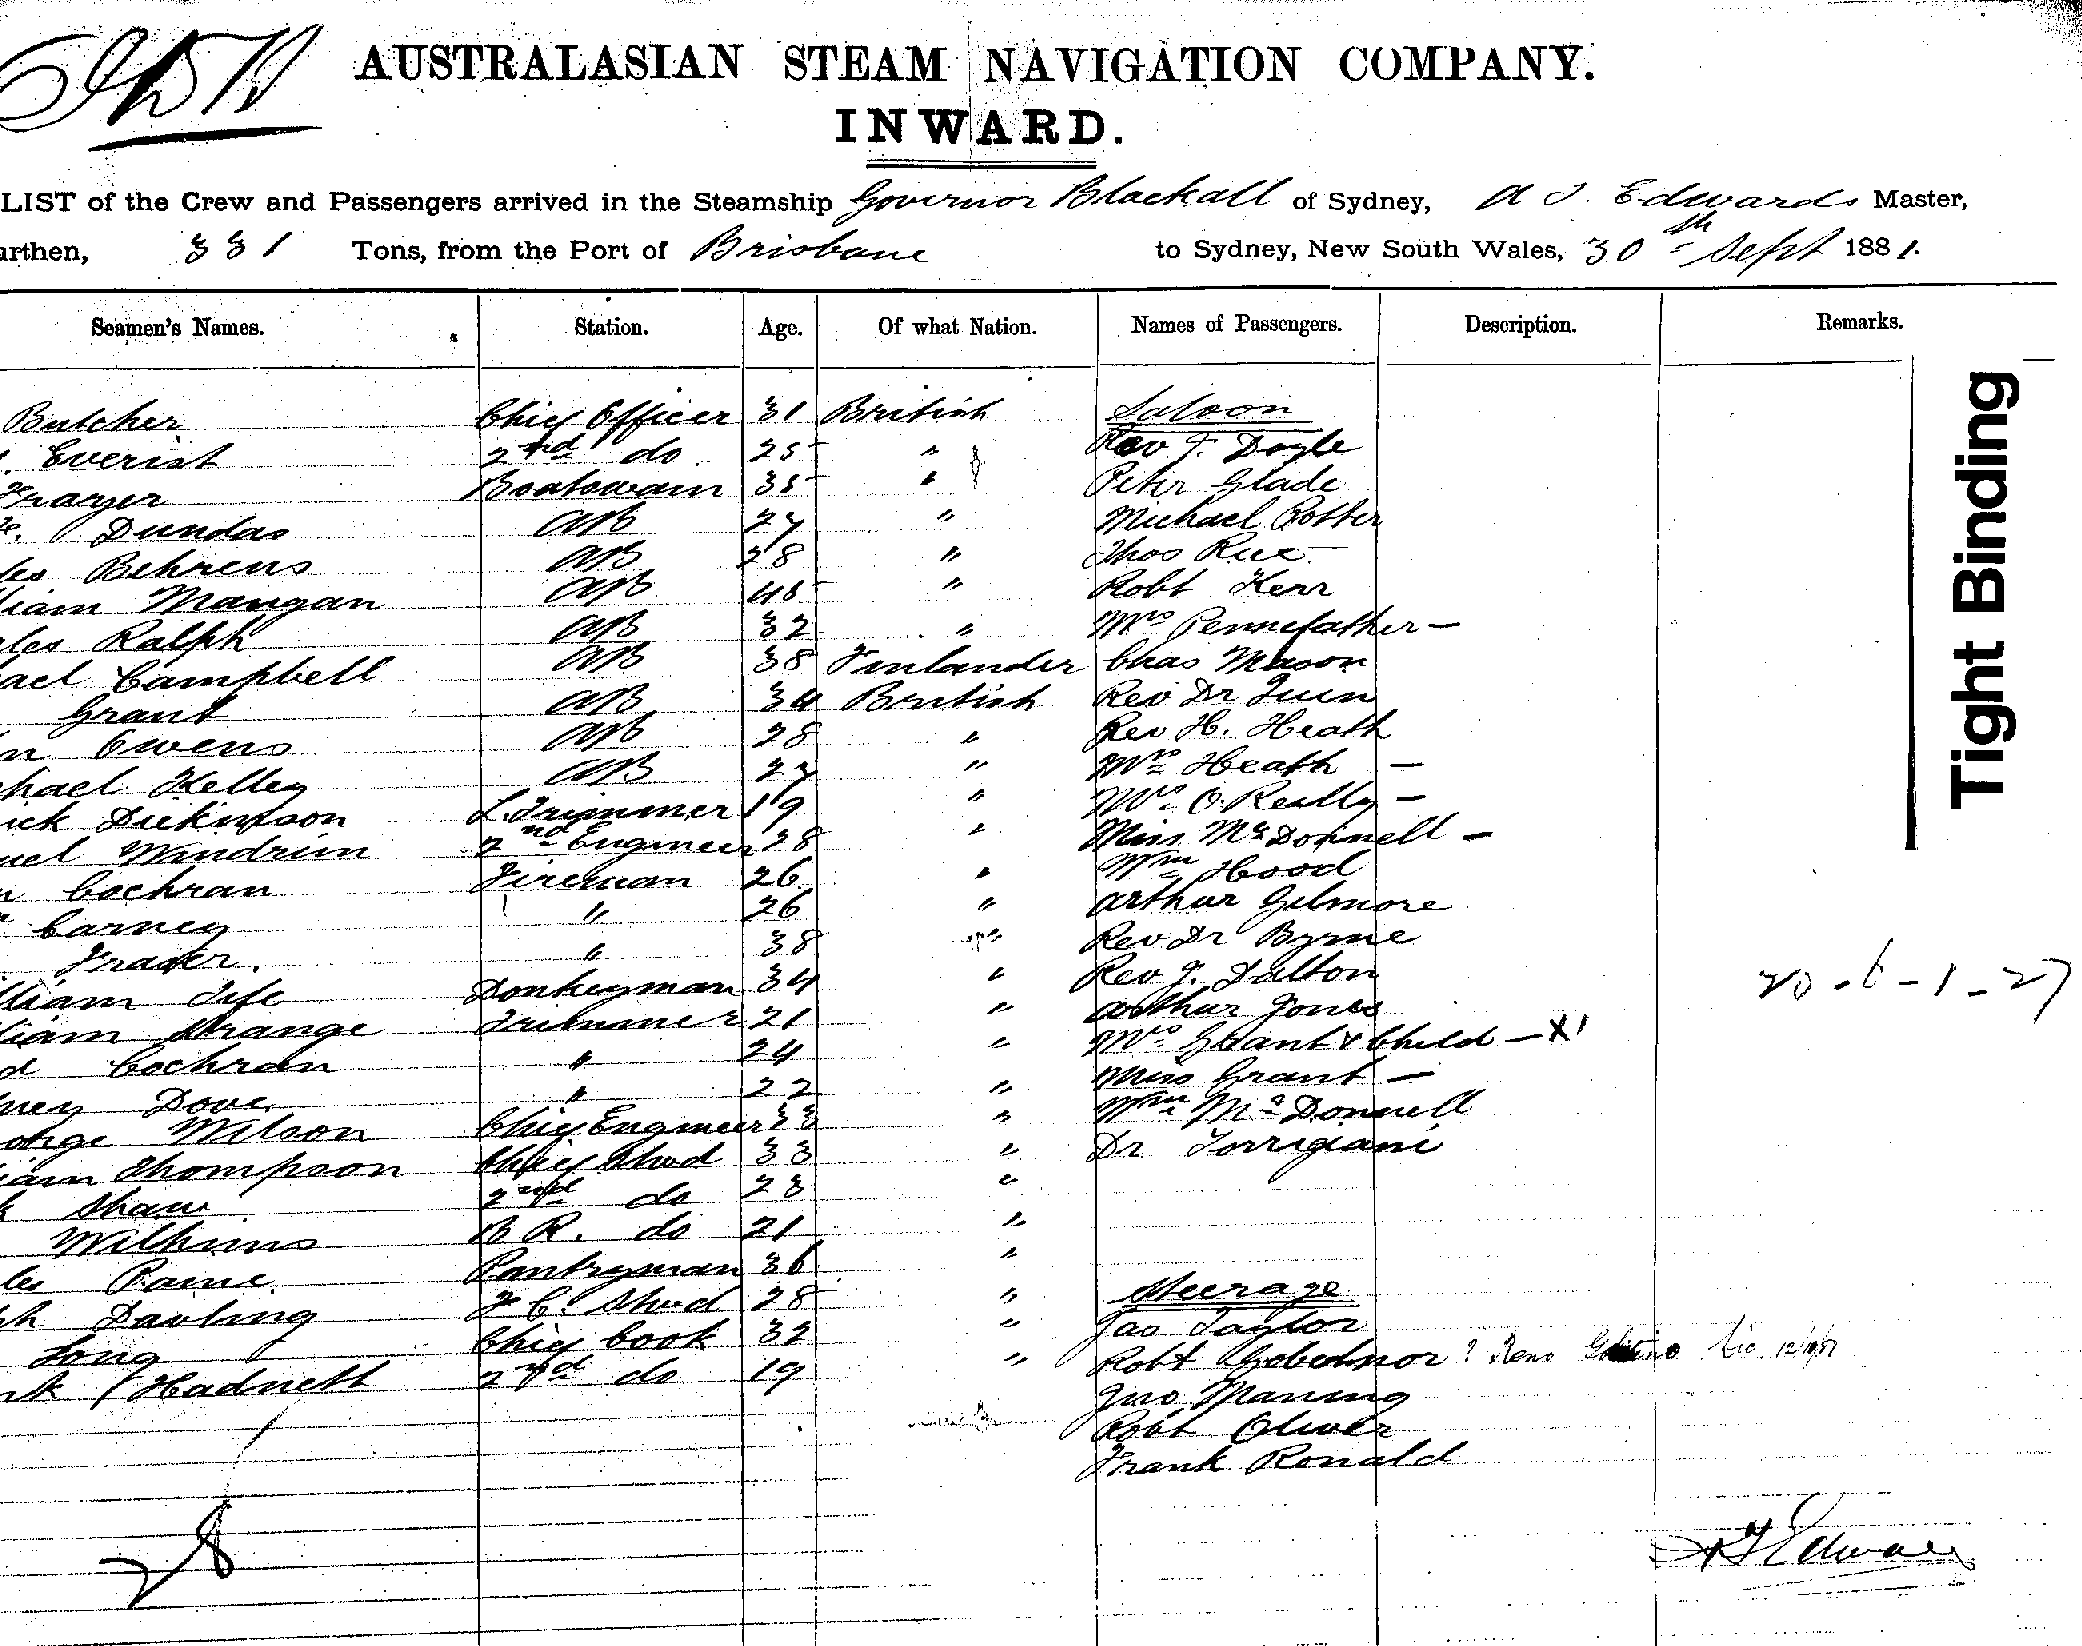 AUSTRALASIAN STEAM NAVIGATION COMPANY.
INWARD.
LIST of the Crew and Passengers arrived in the Steamship Governor Blackall of Sydney, A J. Edwards Master,
arthen, 331 Tons, from the Port of Brisbane to Sydney, New South Wales, 30th Sept 1881.
Seamen's Names. Station. Age. Of what Nation. Names of Passengers. Description. Remarks.
Butcher Chief Officer 31 British Saloon
Everist 2nd do 25 " Rev J. Doyle
Frazer Boatswain 35 " Peter Glade
Dundas AB 27 " Michael Potter
les Behrens AB 28 " Thos Rice
liam Mangan AB 45 " Robt Kerr
les Ralph AB 32 " Mrs Pennefather —
ael Campbell AB 38 Finlander Chas Mason
Grant AB 34 British Rev Dr Quin
n Owens AB 28 " Rev H. Heath
chael Kelley AB 27 " Mrs Heath —
ick Dickinson L. Trimmer 19 " Mrs O.Reilly —
uel Windrim 2nd Engineer 28 " Miss McDonnell —
n Cochran Fireman 26 " Wm Hood
Carney " 26 " Arthur Gilmore
Frader. " 38 " Rev Dr Byrne
lliam Fife Donkeyman 34 " Rev J. Dalton
liam Strange Trimmer 21 " Arthur Jones
d Cochran " 24 " Mrs Grant & Child — X1
ney Dove " 22 " Miss Grant —
orge Wilson Chief Engineer 33 " Wm McDonnell
iam Thompson Chief Stwd 33 " Dr Torrigiani
k Shaw 2nd do 23 "
Wilkins B R. do 21 "
les Paine Pantryman 36 "
ph Dowling F C. Stwd 28 " Steerage
Long Chief Cook 32 " Jas Taylor
nk Hadnett 2nd do 19 " Robt ?
Jno Maning
Robt Oliver
Frank Ronald
28
20-6-1-27
Edwards
Tight Binding